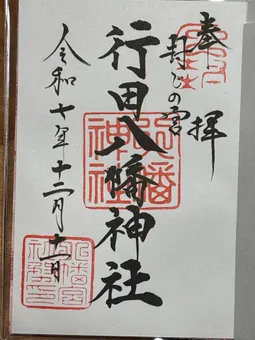 奉拝
封じの宮
行田八幡神社
令和七年十二月十一日